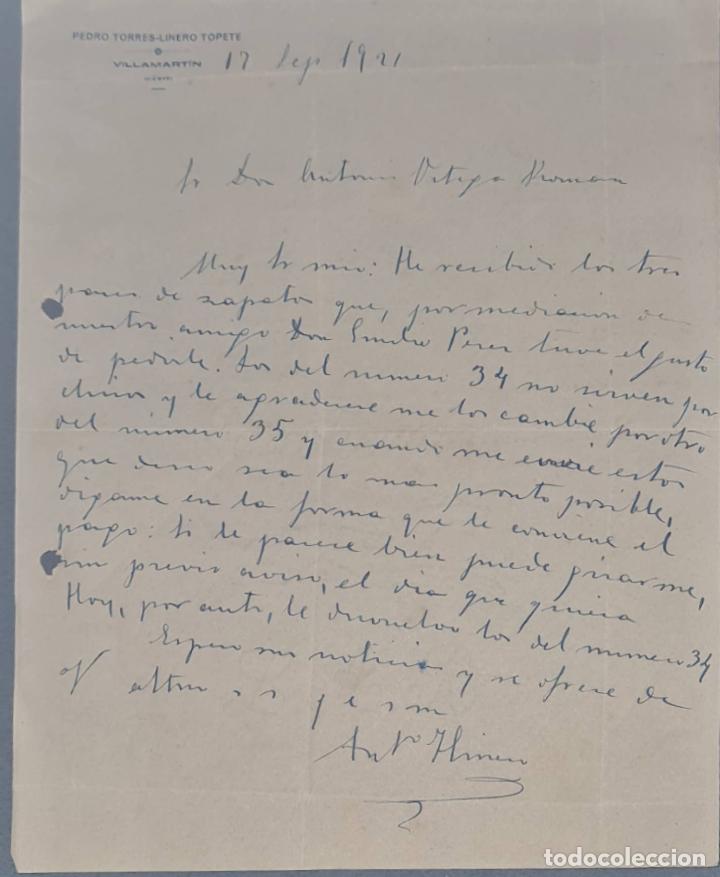 PEDRO TORRES-LINERO TOPETE
VILLAMARTÍN
17 Sep 1921
Sr Don Antonio Ortega Roman
Muy Sr mio: He recibido los tres
pares de zapatos que, por mediacion de
nuestro amigo Don Emilio Perez tuve el gusto
de pedirle. Los del numero 34 no sirven por
chicos y le agradeceré me los cambie por otro
del número 35 y cuando me envie estos
que deseo sea lo mas pronto posible,
digame en la forma que le conviene el
pago: si le parece bien puede girarme,
sin previo aviso, el dia que quiera
Hoy, por auto, le devuelvo los del numero 34
Espero sus noticias y se ofrece de
V attmo s s q e s m
Antº
todocoleccion